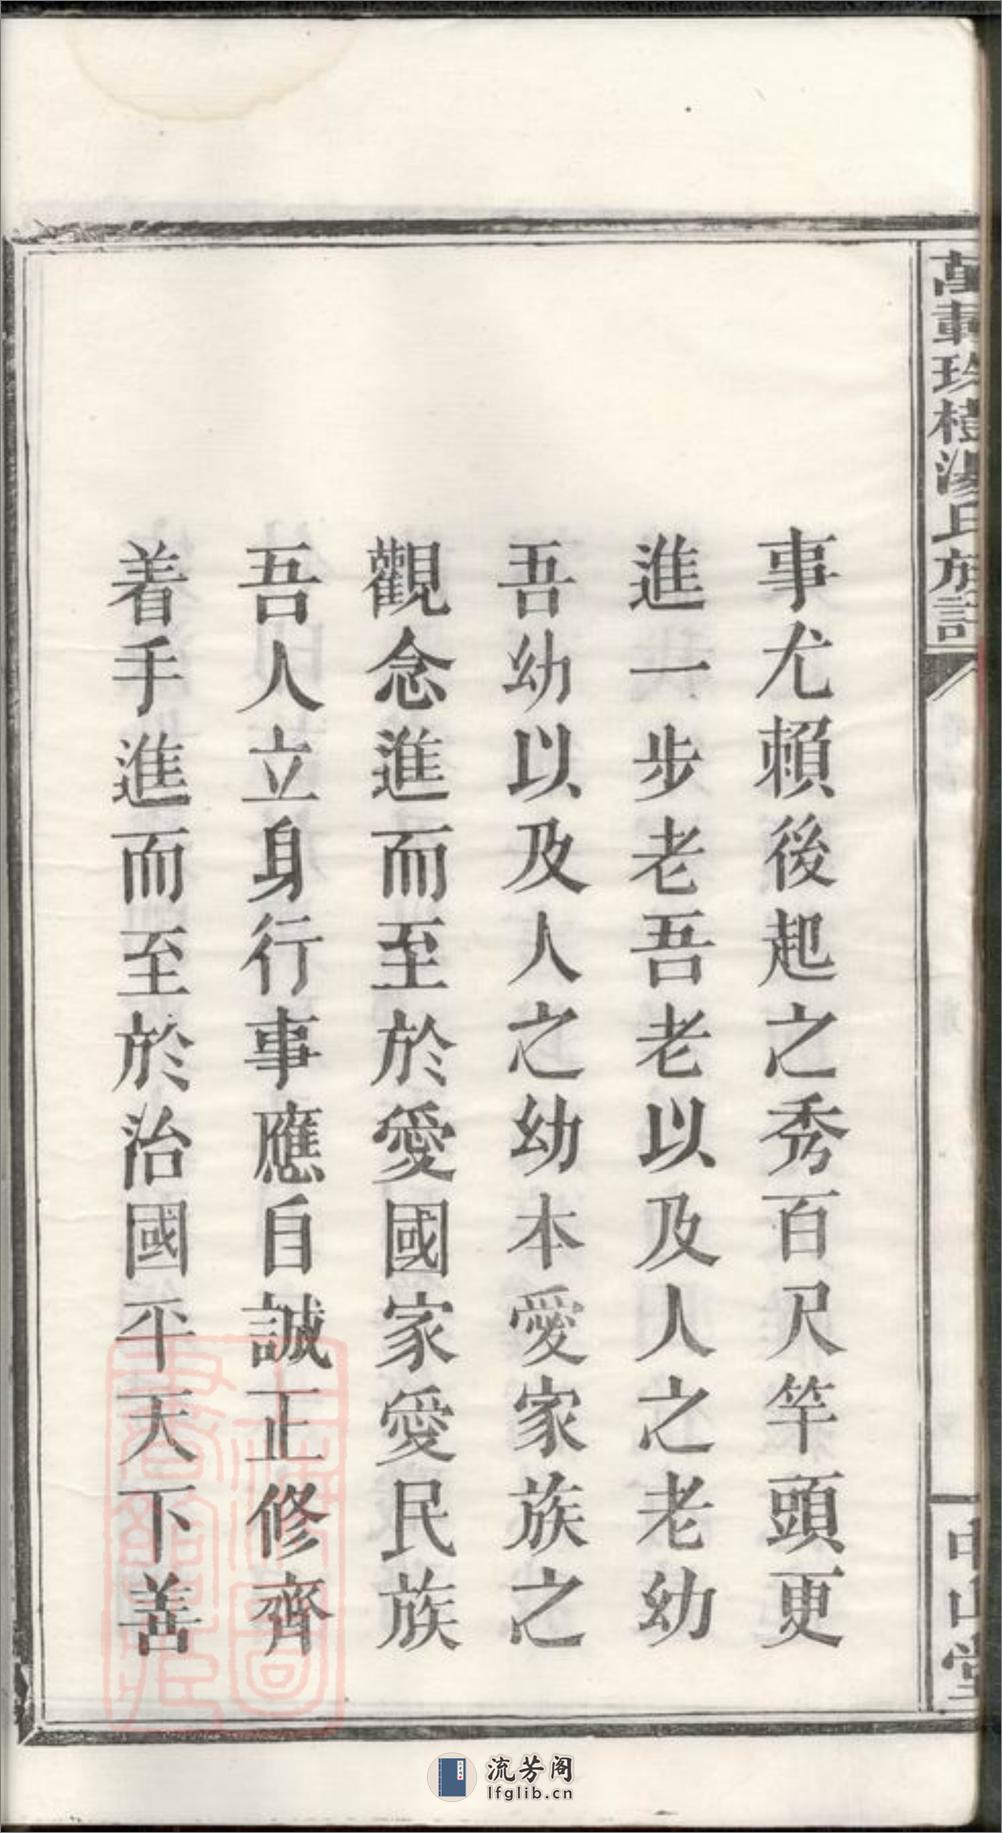 萬載珍樹湯氏族譜
中山堂
事尤賴後起之秀百尺竿頭更
進一步老吾老以及人之老幼
吾幼以及人之幼本愛家族之
觀念進而至於愛國家愛民族
吾人立身行事應自誠正修齊
着手進而至於治國平天下善
流芳阁
lfglib.cn